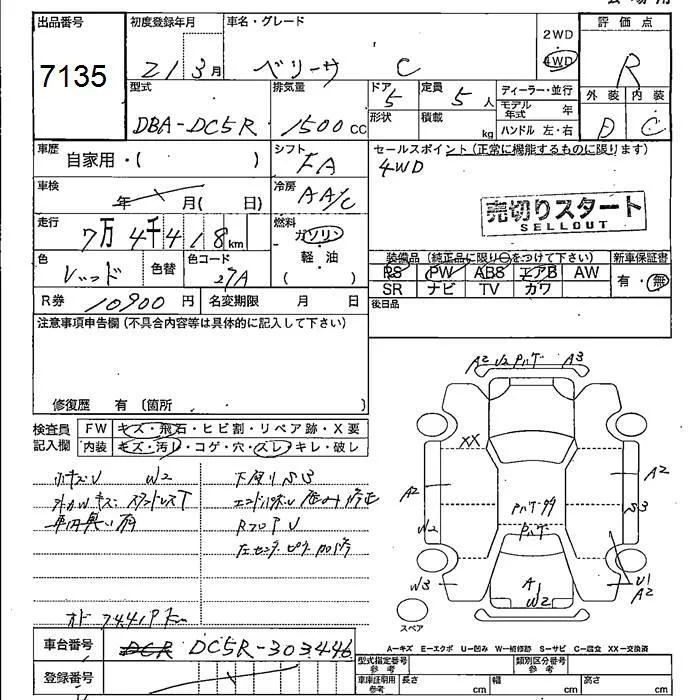 出品番号
7135
初度登録年月
21 3月
車名・グレード
ベリーサ C
2WD
4WD
評価点
R
外装 内装
D C
型式
DBA-DC5R
排気量
1500 cc
ドア
5
形状
定員
5 人
積載
kg
ディーラー・並行
モデル年式 年
ハンドル 左・右
車歴
自家用・( )
シフト
FA
セールスポイント (正常に機能するものに限ります)
4WD
売切りスタート
SELLOUT
車検
年 月( 日)
冷房
AA/C
走行
7万4千418km
燃料
ガソリン
軽・油
( )
色
レッド
色替
色コード
27A
装備品 (純正品に限り○をつけて下さい)
PS PW ABS エアB AW
SR ナビ TV カワ
新車保証書
有・無
R券 10900円
名変期限 月 日
後日品
注意事項申告欄 (不具合内容等は具体的に記入して下さい)
修復歴 有 〔箇所 〕
検査員
記入欄
FW キズ・飛石・ヒビ割・リペア跡・X要
内装 キズ・汚レ・コゲ・穴・スレ・キレ・破レ
W2
下廻りS3
車内臭い有
A2 U2 A3
XX
A2
A2
S3
W2
W3
A
W2
U1
A2
スペア
車台番号
DC5R-303446
登録番号
A―キズ E―エクボ U―凹み W―補修跡 S―サビ C―腐食 XX―交換済
型式指定番号
参考
類別区分番号
参考
車庫証明用
参考
長さ cm 幅 cm 高さ cm